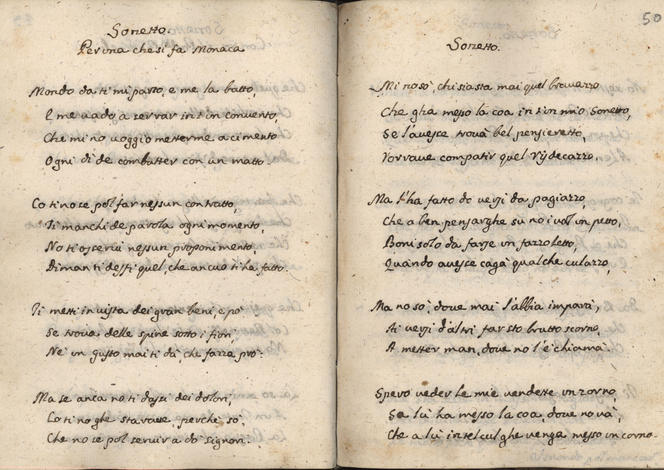 Sonetto.
Per una che si fa Monaca
Mondo da ti mi parto, e me la batto,
E me vado a serrar in t'un convento,
Che mi no voggio metterme a cimento
Ogni dì de combatter con un matto.
Co ti no se pol far nessun contratto,
Ti manchi de parola ogni momento,
No ti osservi nessun proponimento,
Dimanti desfi quel, che ancuo ti ha fatto.
Ti metti in vista dei gran beni, e po'
Se trova delle spine sotto i fiori,
Nè un gusto mai ti dà, che fazza prò.
Ma se anca no ti dassi dei dolori,
Co ti no ghe starave, perchè so,
Che no se pol servir a do signori.
50
Sonetto.
Mi no sò, chi sia sta mai quel bravazzo
Che gha messo la coa in t'un mio Sonetto,
Se l'avesse trovà bel pensieretto,
Vorrave compatir quel
Ma l'ha fatto do versi da pagiazzo,
Che a ben pensarghe su no i val un petto,
Boni solo da farse un fazzoletto,
Quando avesse cagà qualche culazzo,
Ma no sò, dove mai l'abbia imparà,
Ai versi d'altri far sto brutto scorno,
A metter man, dove no l'è chiamà.
Spero veder le mie vendette un zorno,
Se lu ha messo la coa, dove no và,
Che a lu in tel cul ghe venga messo un corno.